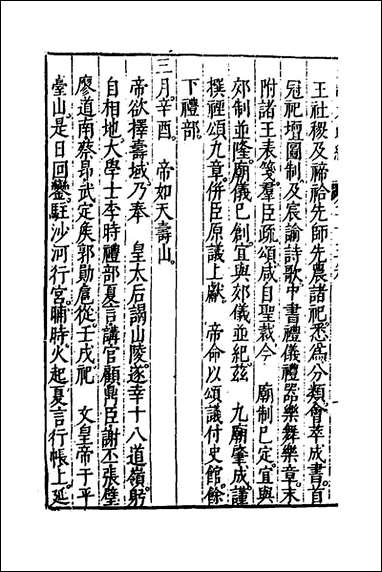 王社稷及禘祫先師先農諸祀悉爲分類會萃成書首
冠祀壇圖制及宸諭詩歌中書禮儀禮器樂舞樂章末
附諸王表箋羣臣疏頌咸自聖裁今　廟制已定宜與
郊制並隆廟儀已創宜與郊儀並紀兹　九廟肇成謹
撰裡頌九章併臣原議上獻　帝命以頌議付史館餘
下禮部
三月辛酉　帝如天壽山
帝欲擇壽域乃奉　皇太后謁山陵遂幸十八道嶺躬
自相地大學士李時禮部夏言講官顧鼎臣謝丕張璧
廖道南蔡昂武定矦郭勛扈從壬戌祀　文皇帝于平
臺山是日回鑾駐沙河行宮晡時火起夏言行帳上延